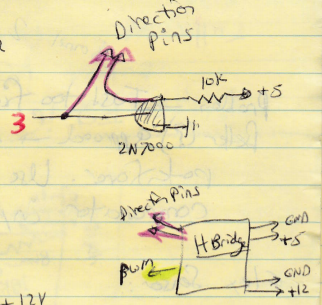 Direction
Pins
10K
+5
3
2N7000
Direction Pins
H Bridge
GND
+5
PWM
GND
+12
+12V